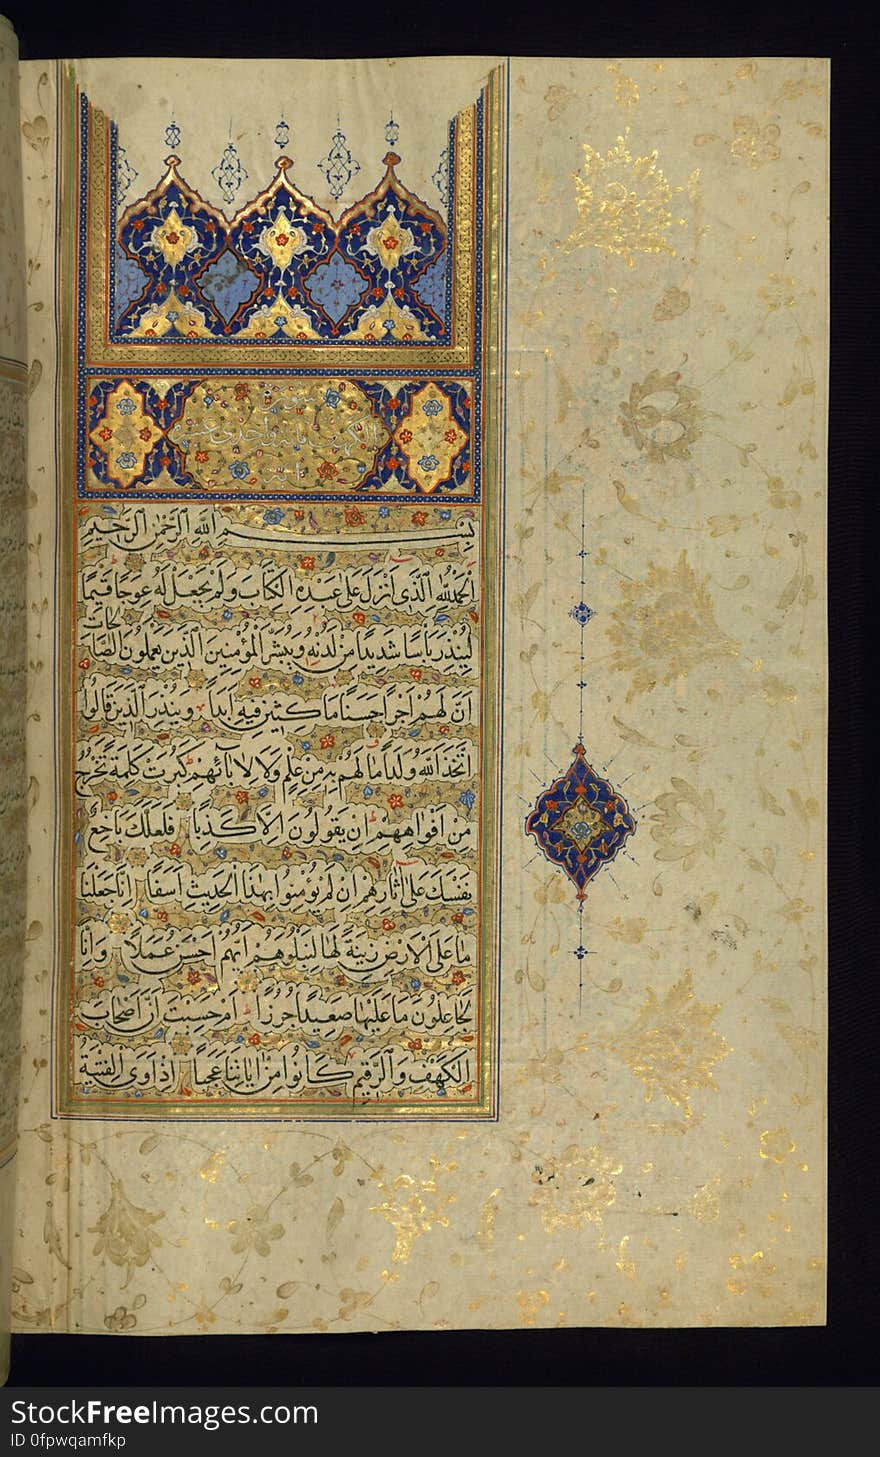 سورة
الكهف مائة واحدى عشر
آية
بسم الله الرحمن الرحيم
اَلْحَمْدُ لِلّٰهِ الَّذِى اَنْزَلَ عَلٰى عَبْدِهِ الْكِتَابَ وَلَمْ يَجْعَلْ لَهُ عِوَجًا قَيِّمًا
لِيُنْذِرَ بَأْسًا شَدِيدًا مِنْ لَدُنْهُ وَيُبَشِّرَ الْمُؤْمِنِينَ الَّذِينَ يَعْمَلُونَ الصَّالِحَاتِ
اَنَّ لَهُمْ اَجْرًا حَسَنًا مَاكِثِينَ فِيهِ اَبَدًا وَيُنْذِرَ الَّذِينَ قَالُوا
اتَّخَذَ اللّٰهُ وَلَدًا مَا لَهُمْ بِهِ مِنْ عِلْمٍ وَلَا لِاٰبَائِهِمْ كَبُرَتْ كَلِمَةً تَخْرُجُ
مِنْ اَفْوَاهِهِمْ اِنْ يَقُولُونَ اِلَّا كَذِبًا فَلَعَلَّكَ بَاخِعٌ
نَفْسَكَ عَلٰى اٰثَارِهِمْ اِنْ لَمْ يُؤْمِنُوا بِهٰذَا الْحَدِيثِ اَسَفًا اِنَّا جَعَلْنَا
مَا عَلَى الْاَرْضِ زِينَةً لَهَا لِنَبْلُوَهُمْ اَيُّهُمْ اَحْسَنُ عَمَلًا وَاِنَّا
لَجَاعِلُونَ مَا عَلَيْهَا صَعِيدًا جُرُزًا اَمْ حَسِبْتَ اَنَّ اَصْحَابَ
الْكَهْفِ وَالرَّقِيمِ كَانُوا مِنْ اٰيَاتِنَا عَجَبًا اِذْ اَوَى الْفِتْيَةُ
StockFreeImages.com
ID 0fpwqamfkp